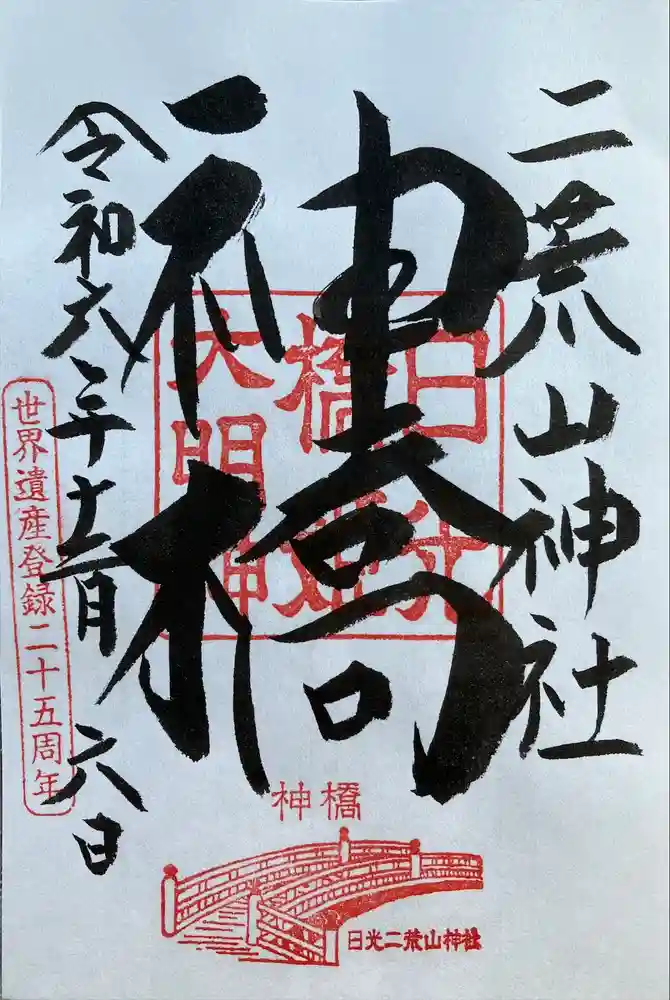 二荒山神社
神橋
令和六年十二月六日
日光
橋姫
大明神
世界遺産登録二十五周年
神橋
日光二荒山神社